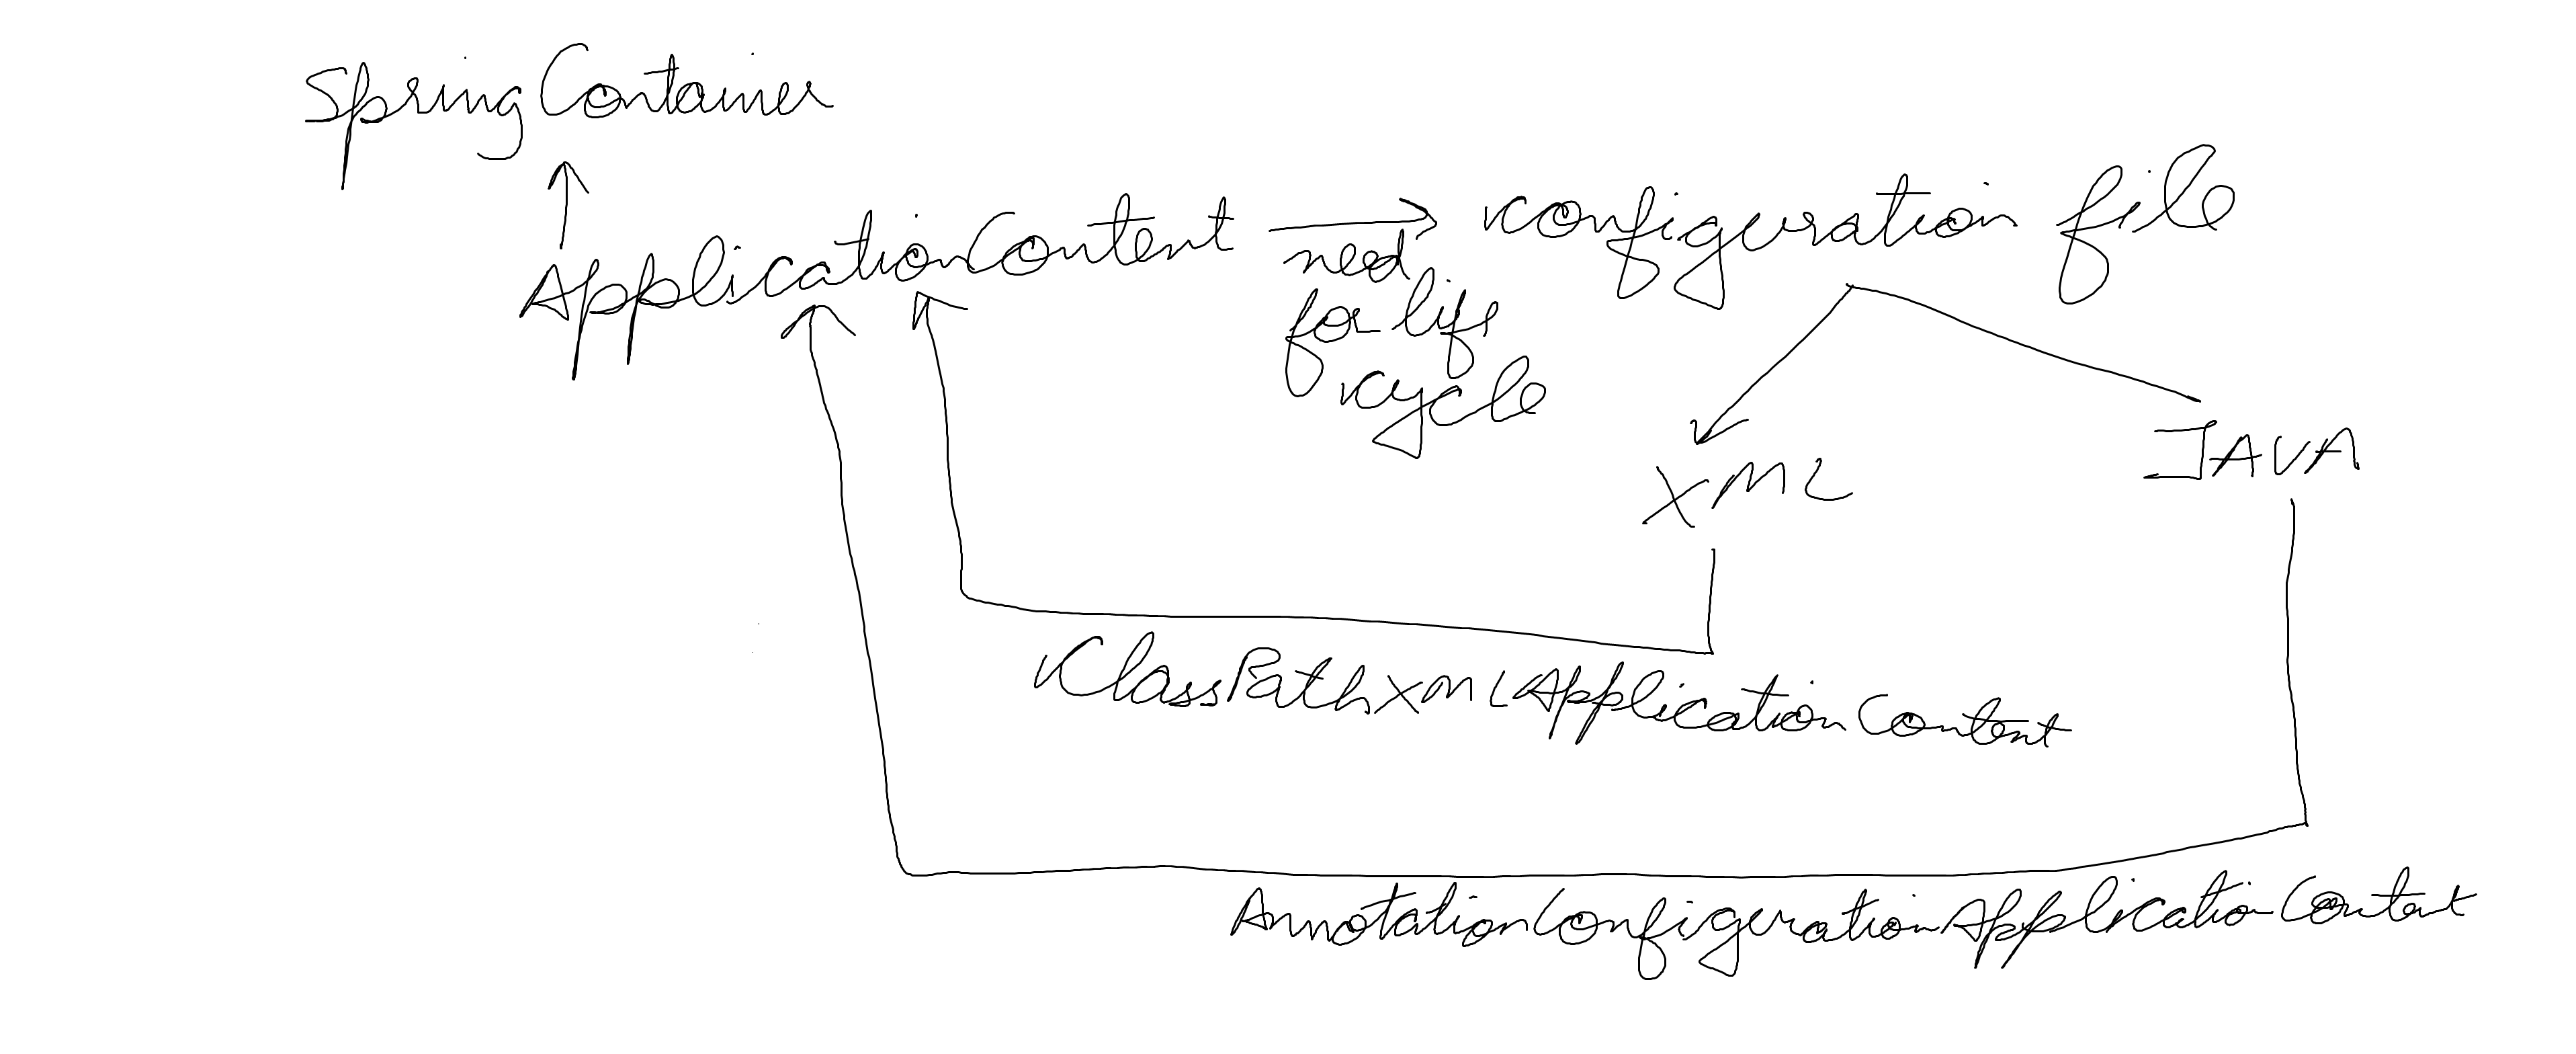 SpringContainer
ApplicationContent
configuration file
need
for life
cycle
XML
JAVA
ClassPathXMLApplicationContent
AnnotationConfigurationApplicationContent